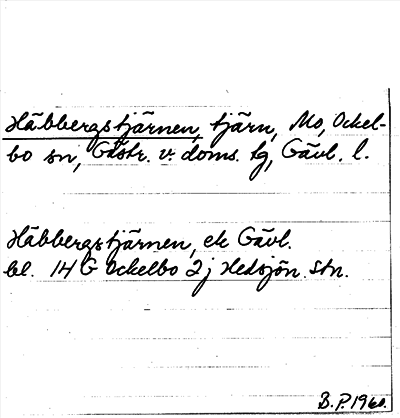 Häbbergstjärnen, tjärn, Mo, Ockel-
bo sn, Gästr. v. doms. tg, Gävl. l.
Häbbergstjärnen, ek Gävl.
bl. 14 G Ockelbo 2 j Hedsjön. stn.
B.P. 1960.